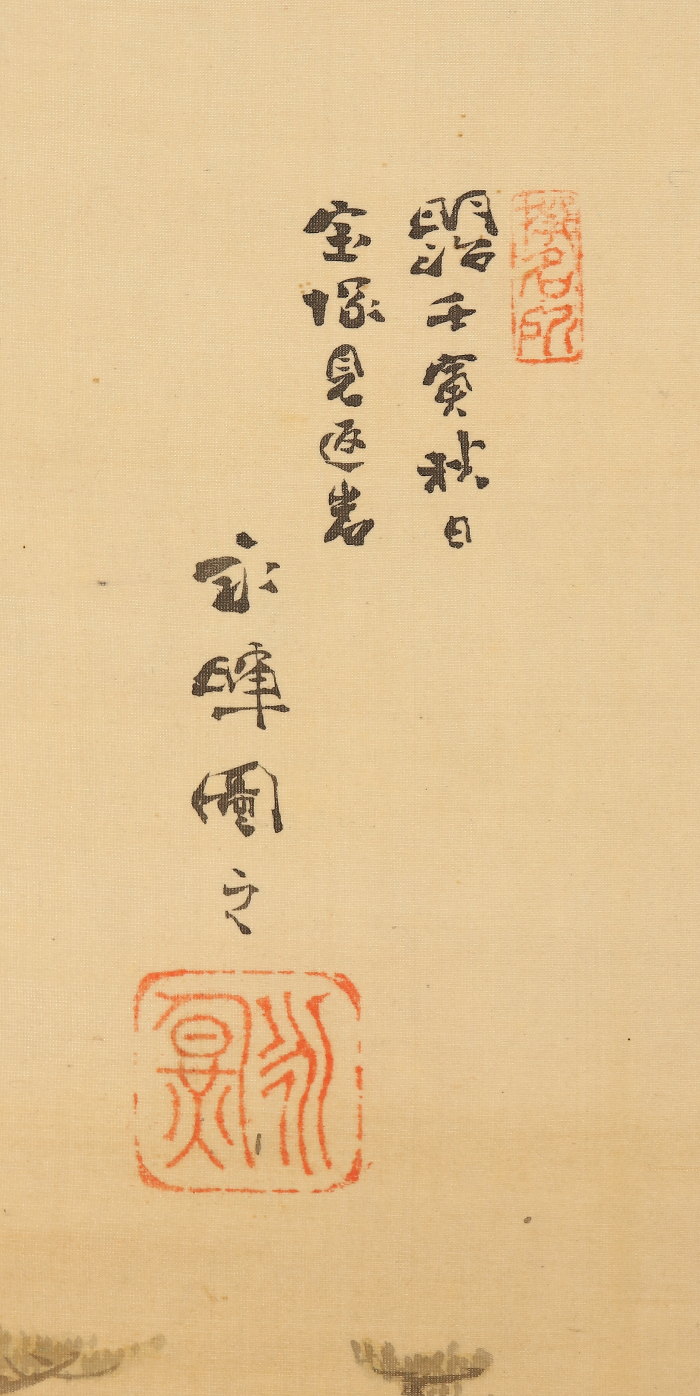 明治壬寅秋日
宝塚見返岩
永暉圖之